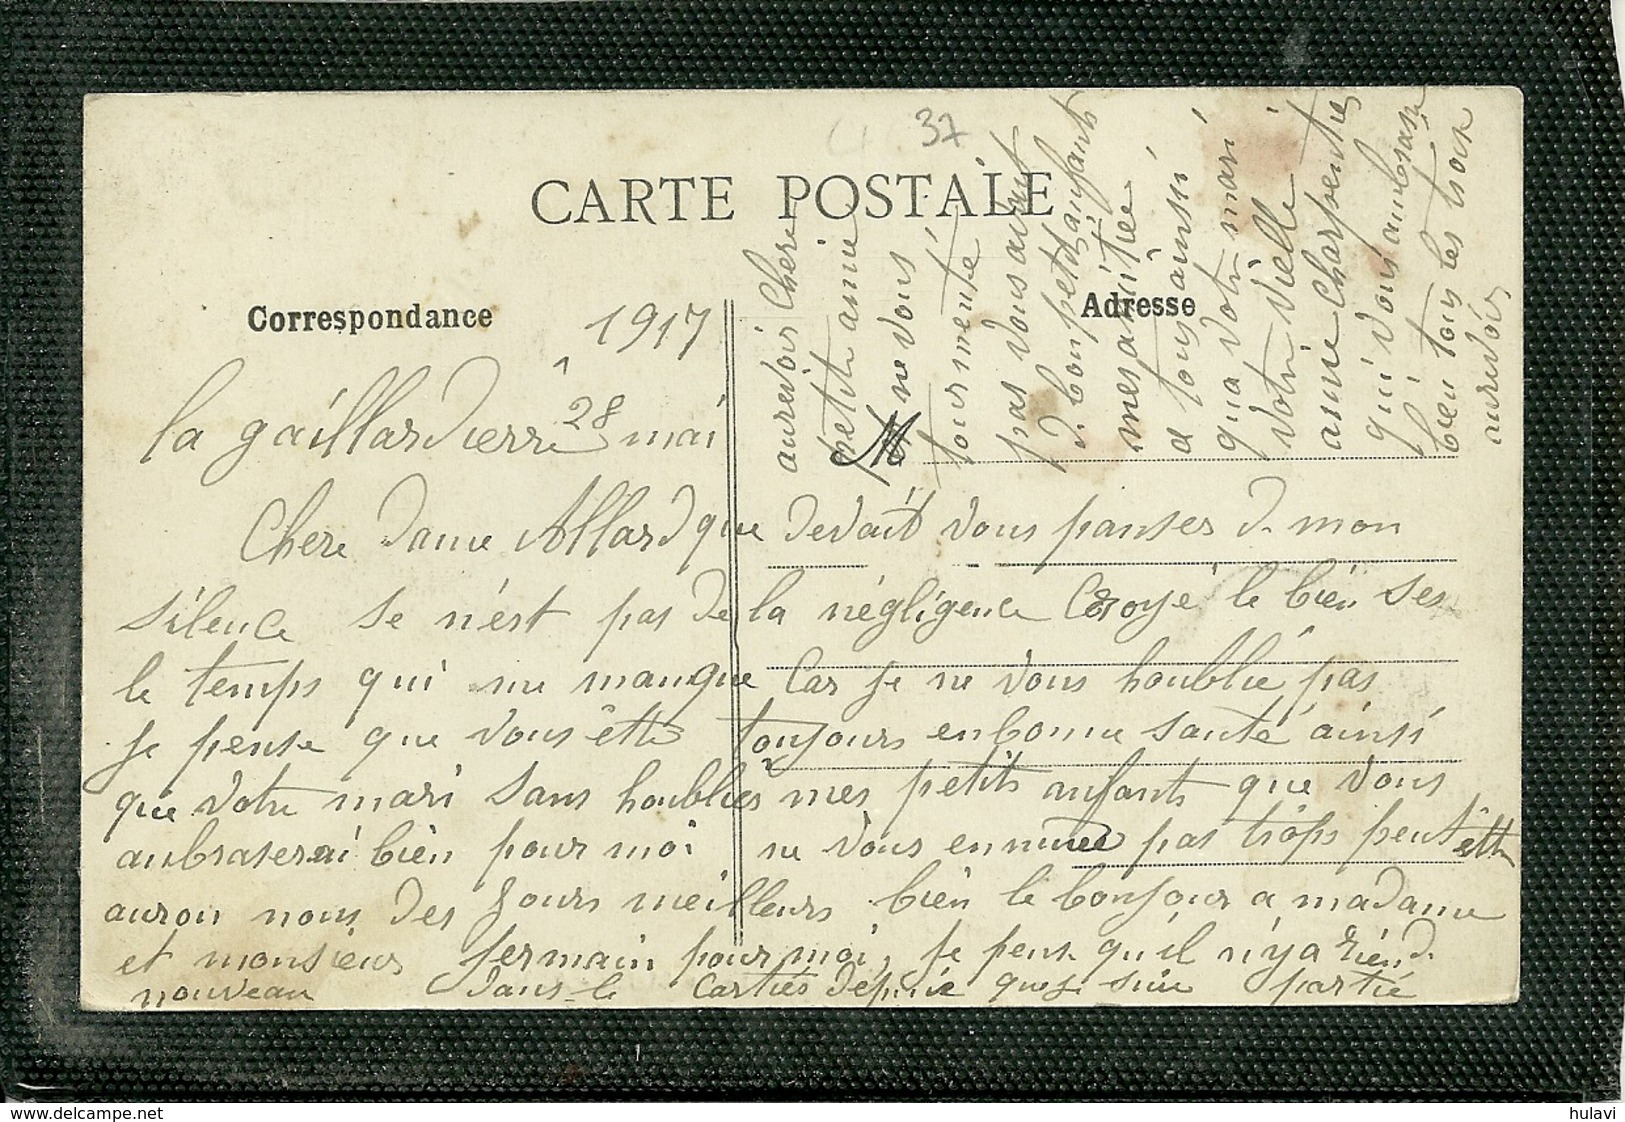 37
CARTE POSTALE
Correspondance
Adresse
1917
la gaillardierre 28 mai
Chere dame Allard que devait vous panser de mon
silence se n'est pas de la négligence Croyé le bien ses
le temps qui me manque Car je ne vous houblie pas
je pense que vous ête toujours en bonne santé ainsi
que votre mari sans houblies mes petits anfants que vous
anbraserai bien pour moi ne vous ennuiee pas trops peut ettre
auron nous des jours meilleurs bien le bonjour a madame
et monsieur germain pour moi, je pense qu'il n'y a rien de
nouveau dans le Cartiés depuie que je suie partie
aurevoir Chere
petite amie
Me ne vous
tourmente
pas vous aurut
de bon petit anfants
mes amitiee
a tous ainssi
qu'a votre mari
votre vielle
amie Charpentier
qui vous anbrasse
bien tous les trois
aurevoir
delcampe.net
hulavi